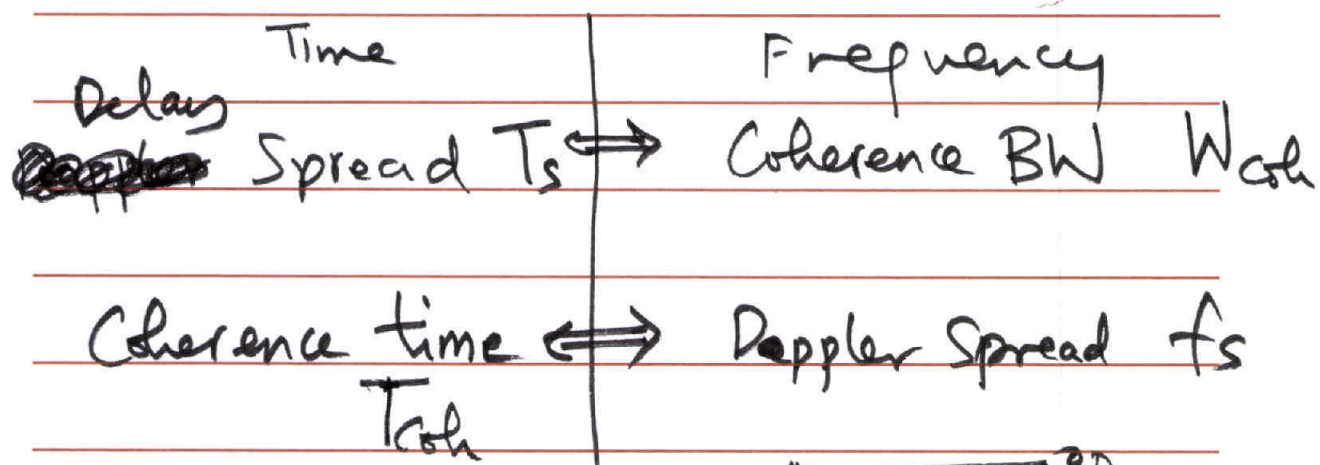 Time Frequency
Delay
Spread Ts ⟺ Coherence BW Wcoh
Coherence time ⟺ Doppler Spread fs
Tcoh